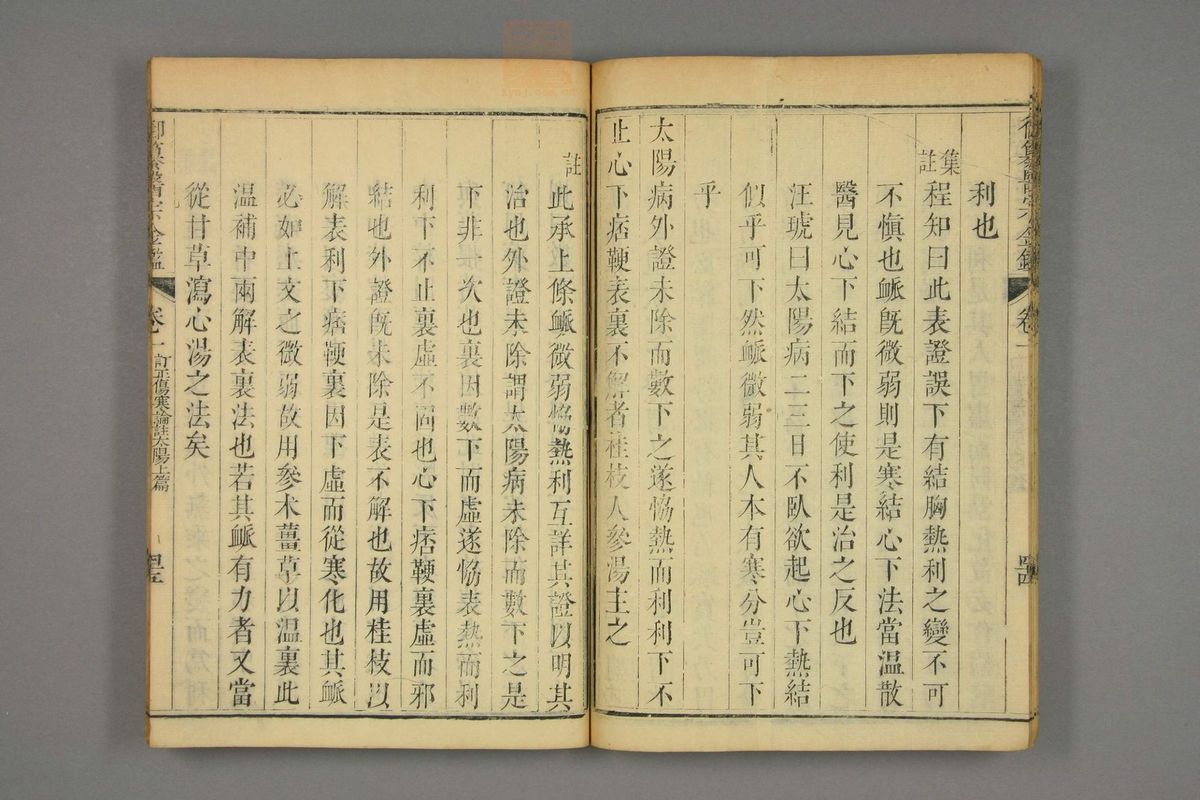 利也
集註程知曰此表證誤下有結胸熱利之變不可
不愼也𧖴旣微弱則是寒結心下法當溫散
醫見心下結而下之使利是治之反也
汪琥曰太陽病二三日不臥欲起心下熱結
似乎可下然𧖴微弱其人本有寒分豈可下
乎
太陽病外證未除而數下之遂恊熱而利利下不
止心下痞鞕表裏不解者桂枝人參湯主之
註此承上條𧖴微弱恊熱利互詳其證以明其
治也外證未除謂太陽病未除而數下之是
下非一次也裏因數下而虛遂恊表熱而利
利下不止裏虛不固也心下痞鞕裏虛而邪
結也外證旣未除是表不解也故用桂枝以
解表利下痞鞕裏因下虛而從寒化也其𧖴
必如上文之微弱故用參术薑草以温裏此
温補中兩解表裏法也若其𧖴有力者又當
從甘草瀉心湯之法矣
御纂醫宗金鑑 卷一 訂正傷寒論註太陽上篇 四五